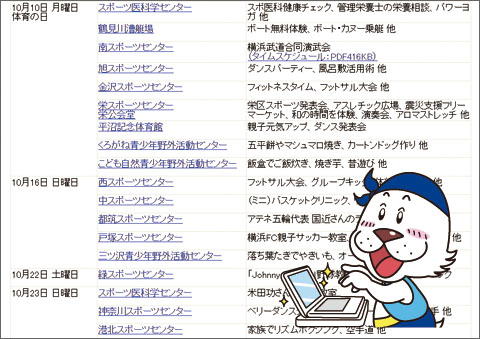 10月10日 月曜日 スポーツ医科学センター スポ医科健康チェック、管理栄養士の栄養相談、パワーヨ
体育の日 ガ 他
鶴見川漕艇場 ボート無料体験、ボート・カヌー乗艇 他
南スポーツセンター 横浜武道合同演武会
(タイムスケジュール:PDF416KB)
旭スポーツセンター ダンスパーティー、風呂敷活用術 他
金沢スポーツセンター フィットネスタイム、フットサル大会 他
栄スポーツセンター 栄区スポーツ発表会、アスレチック広場、震災支援フリー
栄公会堂 マーケット、和の時間を体験、演奏会、アロマストレッチ 他
平沼記念体育館 親子元気アップ、ダンス発表会
くろがね青少年野外活動センター 五平餅やマシュマロ焼き、カートンドッグ作り 他
こども自然青少年野外活動センター 飯盒でご飯炊き、焼き芋、昔遊び 他
10月16日 日曜日 西スポーツセンター フットサル大会、グループキッ 体験 他
中スポーツセンター (ミニ)バスケットクリニック、
都筑スポーツセンター アテネ五輪代表 国近さんの
戸塚スポーツセンター 横浜FC親子サッカー教室、 他
三ツ沢青少年野外活動センター 落ち葉たきでやきいも、オー
10月22日 土曜日 緑スポーツセンター 「Johnny 野球教 ック
10月23日 日曜日 スポーツ医科学センター 米田功さん 室
神奈川スポーツセンター ベリーダンス 他
港北スポーツセンター 家族でリズムボクシング、空手道 他